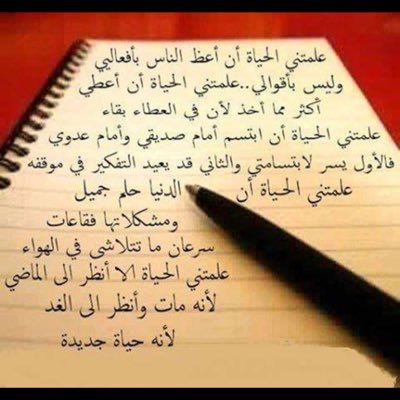 علمتني الحياة أن أعظ الناس بأفعاليي
وليس بأقوالي..علمتني الحياة أن أعطي
أكثر مما أخذ لأن في العطاء بقاء
علمتني الحياة أن ابتسم أمام صديقي وأمام عدوي
فالأول يسر لابتسامتي والثاني قد يعيد التفكير في موقفه
علمتني الحياة أن الدنيا حلم جميل
ومشكلاتها فقاعات
سرعان ما تتلاشى في الهواء
علمتني الحياة الا أنظر الى الماضي
لأنه مات وأنظر الى الغد
لأنه حياة جديدة